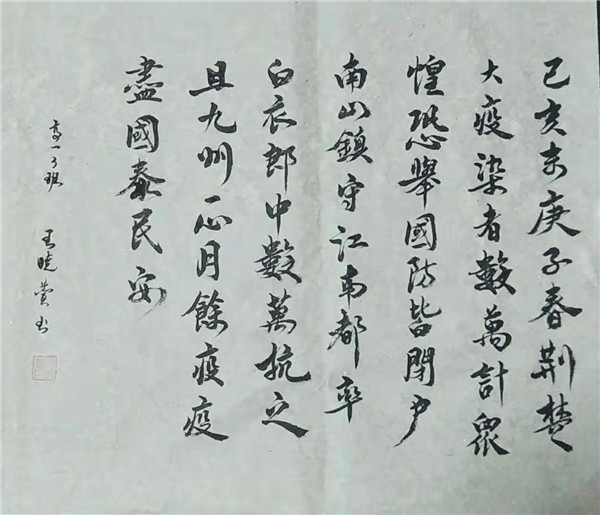 己亥末庚子春荆楚
大疫染者數萬計眾
惶恐舉國防皆閉户
南山鎮守江南都率
白衣郎中數萬抗之
且九州一心月餘疫疫
盡國泰民安
高一班
王曉书